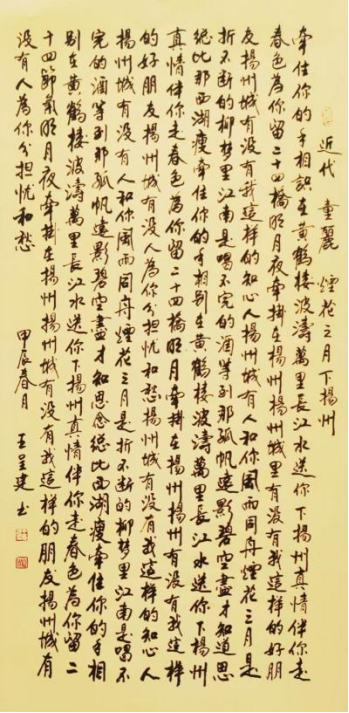 近代 童麗 煙花三月下揚州
牽住你的手相別在黃鶴樓波濤萬里長江水送你下揚州真情伴你走
春色為你留二十四橋明月夜牽掛在揚州揚州城里有没有我這样的好朋
友揚州城有没有我這样的知心人揚州城有没有人和你風雨同舟煙花三月是
折不断的柳梦里江南是喝不完的酒等到那孤帆遠影碧空盡才知道思
總比那西湖瘦牽住你的手相别在黄鶴樓波濤萬里長江水送你下揚州
真情伴你走春色為你留二十四橋明月牽掛在揚州揚州有没有我這样
的好朋友揚州城有没人為你分担忧和愁揚州城有没有我這样的知心人
揚州城有没有人和你風雨同舟煙花三月是折不断的柳梦里江南是喝不
完的酒等到那孤帆遠影碧空盡才知思念總比西湖瘦牽住你的手相
别在黄鶴樓波濤萬里長江水送你下揚州真情伴你走春色為你留二
十四節氣明月夜牽掛在揚州揚州城有没有我這样的朋友揚州城有
没有人為你分担忧和愁 甲辰春月 王呈建书